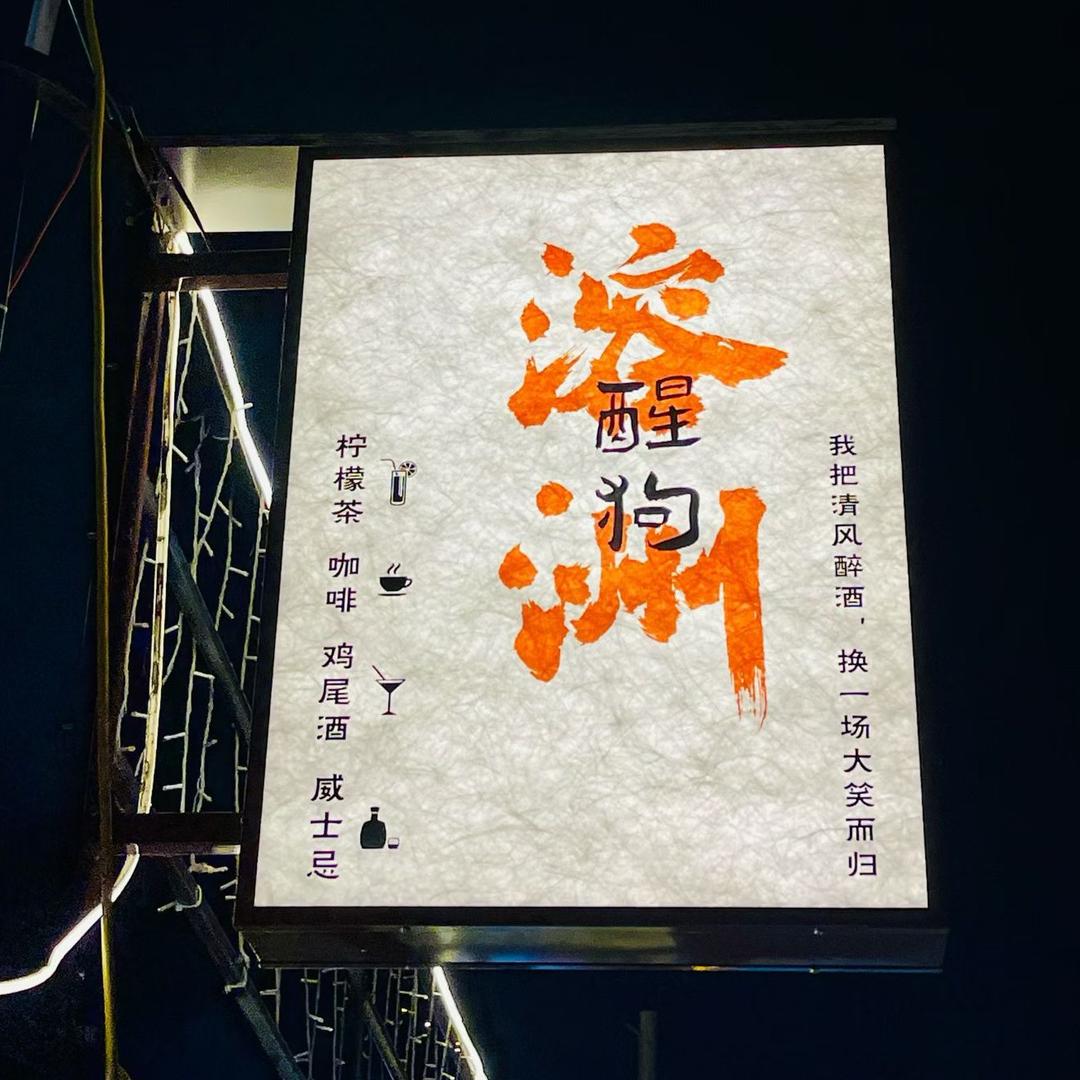 洲
醒狗
我把清风醉酒，换一场大笑而归
柠檬茶 咖啡 鸡尾酒 威士忌